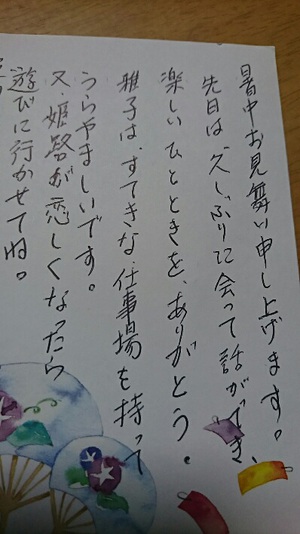 暑中お見舞い申し上げます。
先日は、久しぶりに会って話ができ、
楽しいひとときを、ありがとう。
雅子は、すてきな仕事場を持って
うらやましいです。
又、姫路が恋しくなったら
遊びに行かせてね。